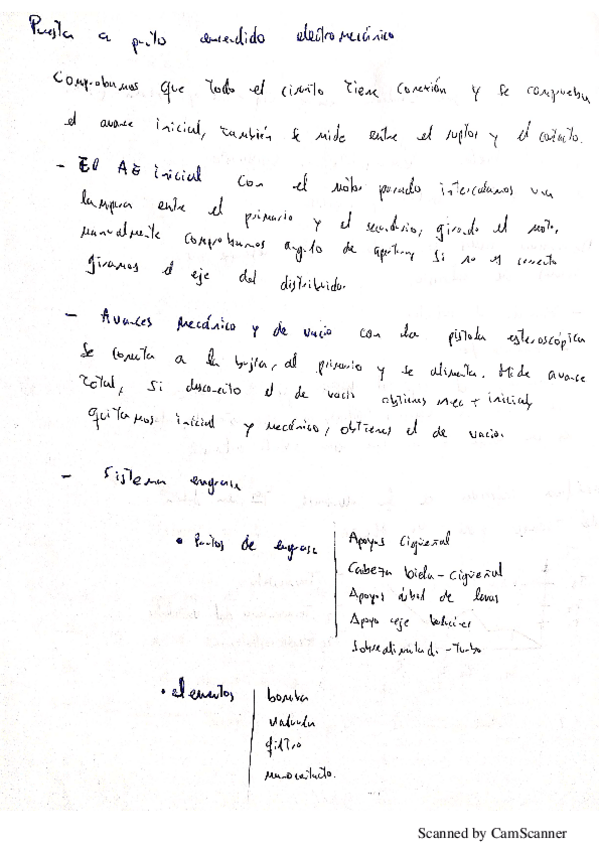 Puesta a punto encendido electromecánico
Comprobamos que todo el circuito tiene conexión y se comprueba
el avance inicial, también se mide entre el ruptor y el contacto.
- El AE inicial con el motor parado intercalamos una
lampara entre el primario y el secundario, girando el motor
manualmente comprobamos angulo de apertura si no es correcto
giramos el eje del distribuidor.
- Avances mecánico y de vacio con la pistola esteroscópica
se conecta a la bujía, al primario y se alimenta. Mide avance
total, si desconecto el de vacio obtienes mec + inicial,
quitamos inicial y mecánico, obtienes el de vacio.
- Sistema engrase
• Puntos de engrase
Apoyos Cigüeñal
Cabeza biela - Cigüeñal
Apoyos árbol de levas
Apoyo eje
Sobrealimentad. - Turbo
• elementos
bomba
valvula
filtro
manocontacto.
Scanned by CamScanner